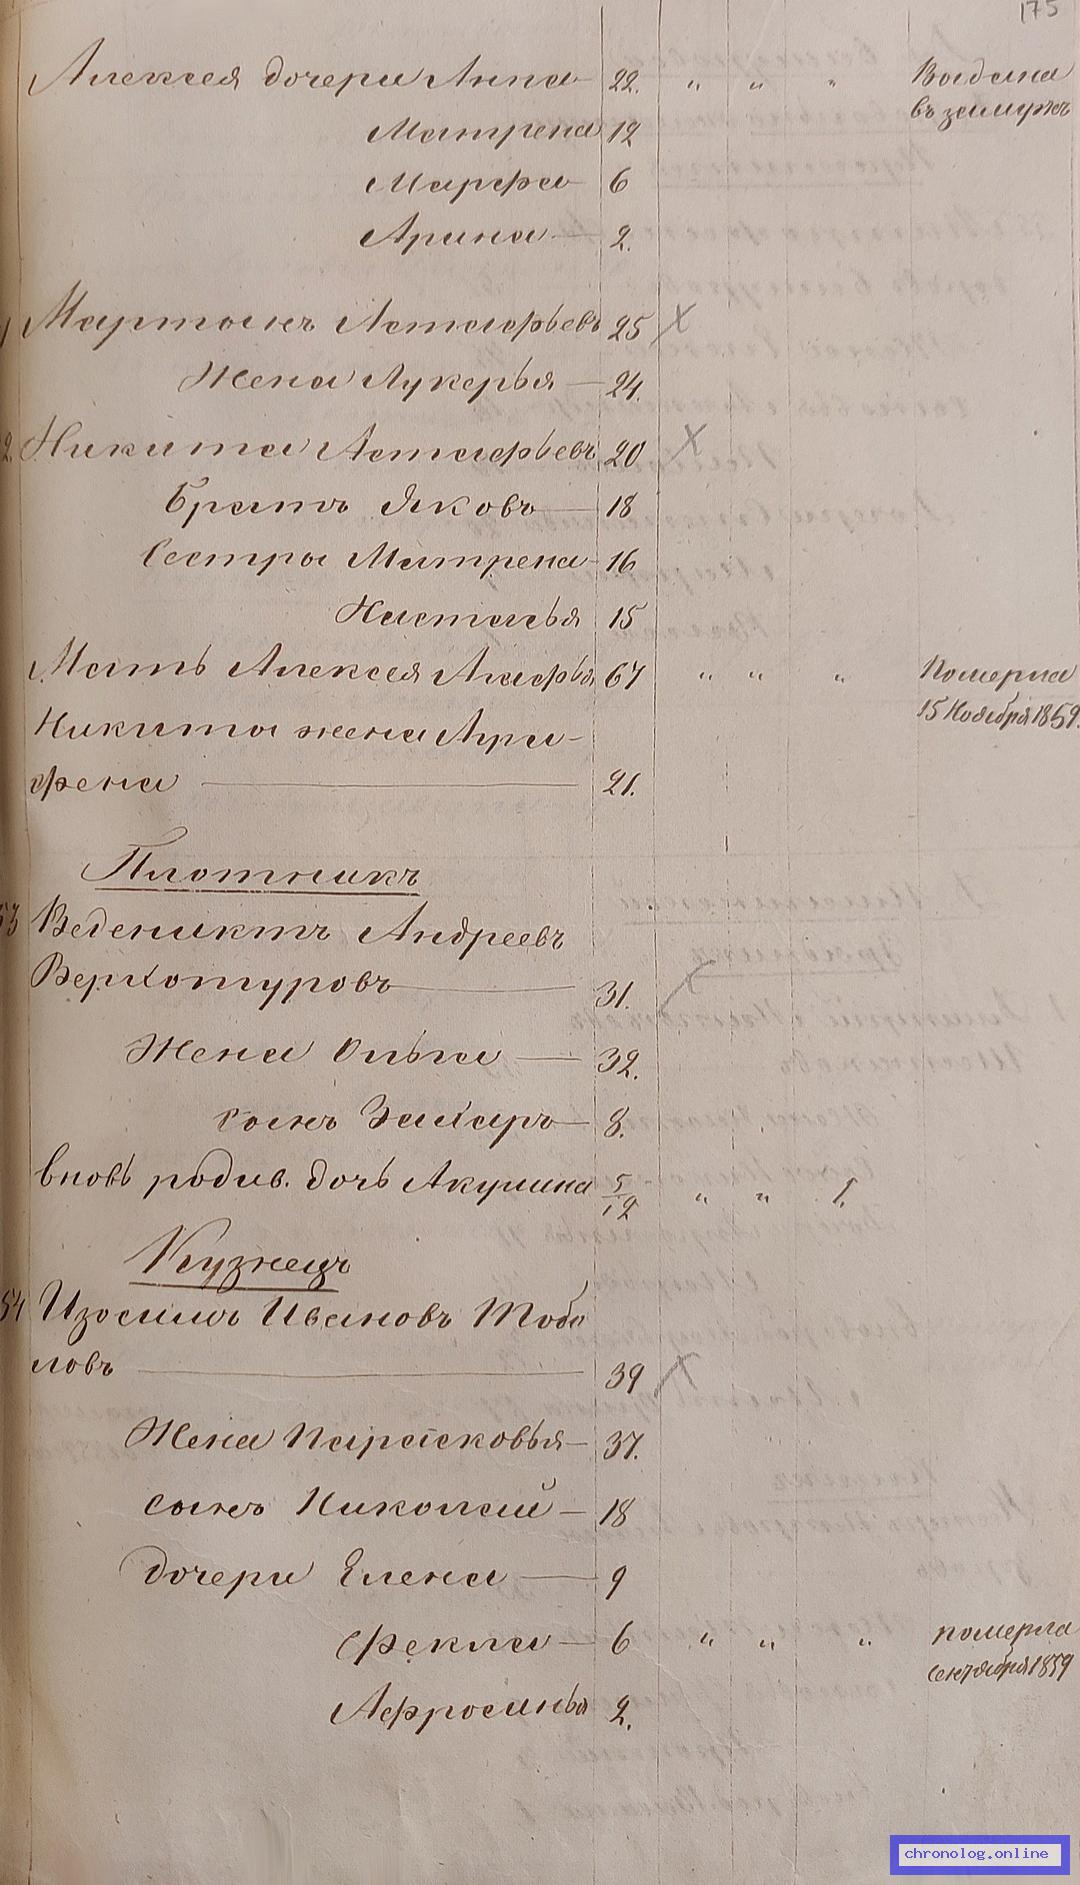 175
Алексея дочери Анна 22. " " " Выдана
въ замужъ
Матрена 12
Марфа 6
Арина 2.
Мартынъ Астафьевъ 25
Жена Лукерья 24.
2 Никита Астафьевъ 20
Братъ Яковъ 18
Сестры Матрена 16
Настасья 15
Мать Алексея Агафья 67 " " " Померла
15 Ноября 1859.
Никиты жена Агри-
фена 21.
Плотникъ
53 Ведениктъ Андреевъ
Верхотуровъ 31.
Жена Ольга 32.
сынъ Захаръ 8.
вновь родив. дочь Акулина 5/12 " " 1.
Кузнецъ
54 Изосимъ Ивановъ Тобо
ловъ 39
Жена Парасковья 37.
сынъ Николай 18
дочери Елена 9
Фекла 6 " " " померла
Сентября 1859
Афросинья 2.
chronolog.online